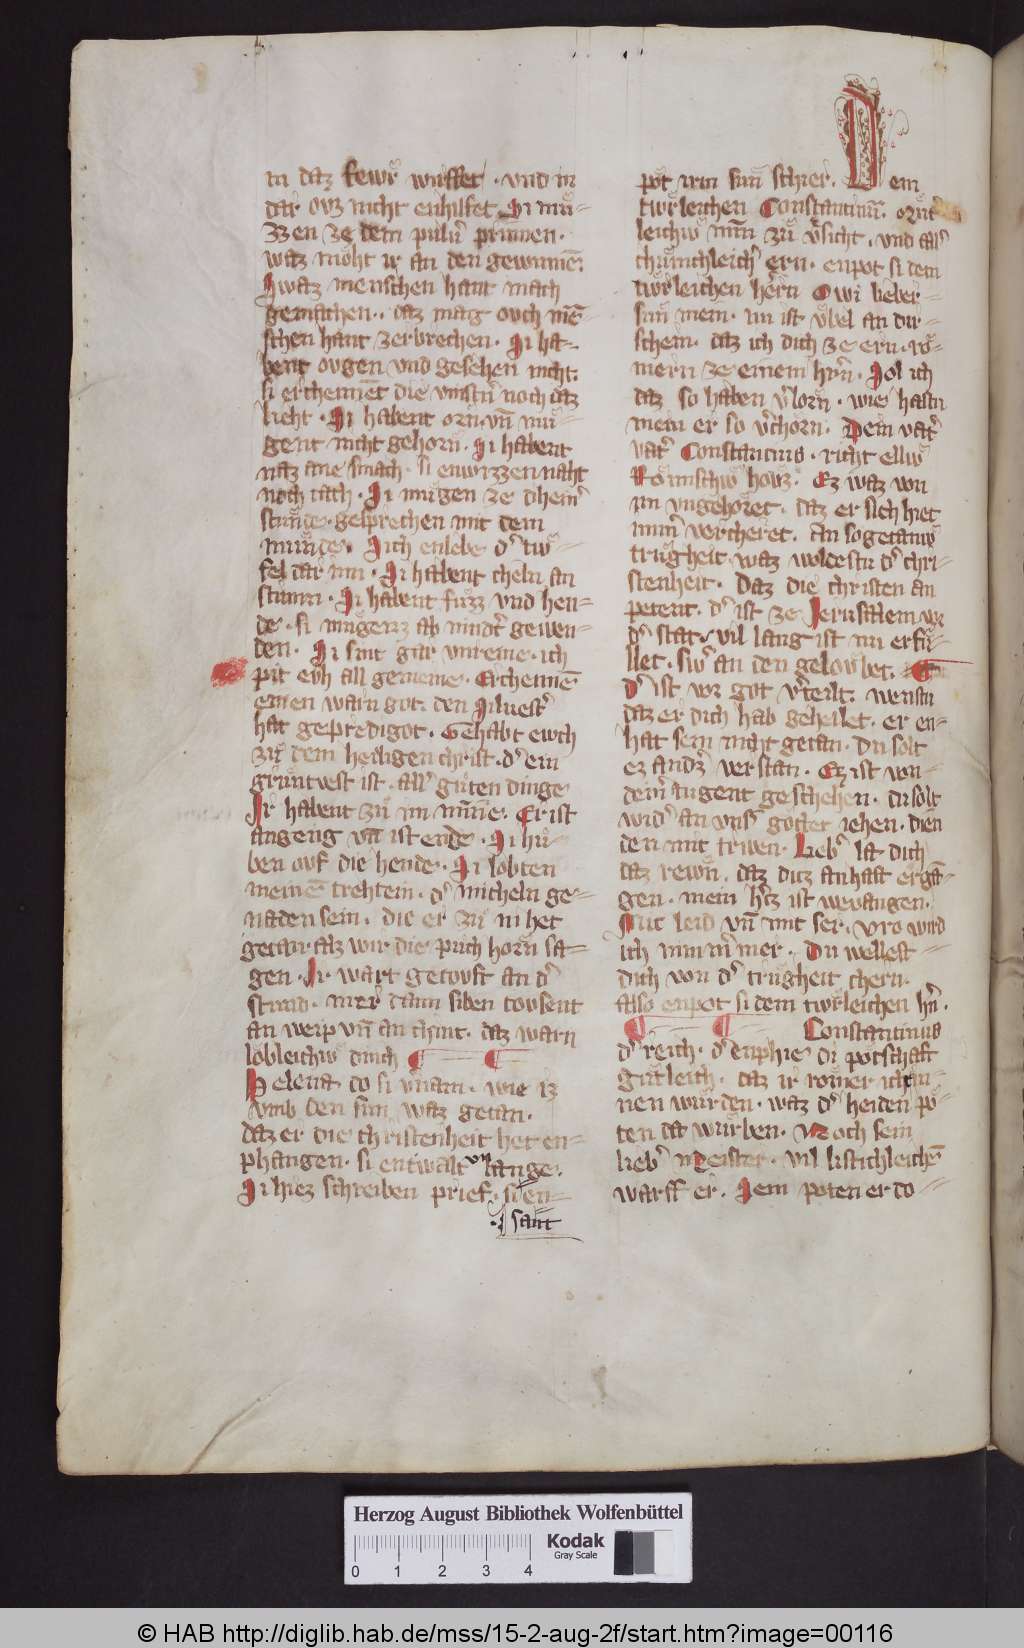 in daz fewr wurffet · vnd in
dar ovz nicht enhilfet Si mu᷍-
zzen ze dem puluͬ prinnen ·
waz moͤht ir an den gewinnē.
Swaz menschen hant mach
gemachen · daz mag ovch mē-
schen hant zerbrechen · Si ha-
bent ovgen vnd gesehen nicht.
si erchennēt die vinstͬ noch daz
lieht · Si habent orn vn̄ mu-
gent niht gehorn · Si habent
naz ane smach · si enwizzen naht
noch tach · Si mugen ze dheinͬ
stunde · gesprechen mit dem
munde · Sich enlebe dͬ tiv-
fel dar inn · Si habent cheln an
stimm · Si habent fuzz vnd hen-
de · si mugenz ab nindͬt gewen-
den · Si sint gar vnreine · ich
pit evh all gemeine · Erchennē
einen warn got · den Siluestͬ
hat gepredigot · Gehabt ewch
zuͦ dem heiligen christ · dͬ ein
gruntvest ist · allͬ guͦten dinge
Ir habent zuͦ im minne · Er ist
angeng vn̄ ist ende · Si hu-
ben ovf die hende · Si lobten
meinē trehtein · dͬ micheln ge-
naden sein · die er zuͦ in het
getan alz wir die puch horn sa-
gen · Ir wart getovft an dͬ
stund · mer dann siben tovsent
an weip vn̄ an chint · daz warn
lobleichiv dinch
Helena do si vͬnam · wie iz
vmb den sun waz getan ·
daz er die christenheit het en-
phangen · si entwalt vnlange ·
Si hiez schreiben prief · si en-
· sant
pot irm sun schier · Dem
tiwͬleichen Constantinū · orntͬ
leichiv minn zuͦ vͬsicht · vnd allͬ
chunichleichͬ ern · enpot si dem
tiwͬleichen hern Owi lieber
sun mein · nu ist vbel an dir
schein · daz ich dich ze ern · ro-
mern ze einem hͬrn · Sol ich
daz so haben vͬlorn · wie hastu
mein er so vͬchorn · Dein vatͬ
vatͬ Constantius · richt elliv
Romischiv hovz · Ez waz von
im vngehoret · daz er sich hiet
nimͬ vercheret · an sogetaniv
trugheit · waz woldestu dͬ chri-
stenheit · Daz die christen an
petent · dͬ ist ze Jerusalem vor
dͬ stat · vil lang ist nu erfu-
llet · swͬ an den gelovbet ·
dͬ ist vor got vͬteilt · wenstu
daz er dich hab geheilet · er en-
hat sein niht getan · Du solt
ez andͬz verstan · Ez ist von
deinͬ augent geschehen · du solt
widͬ an vnsͬ gotter iehen · dien
den mit triwen · Liebͬ la dich
daz rewn · daz diz anhaft ergā-
gen · mein hͬcz ist wevangen ·
Mit leid vn̄ mit ser · vro wird
ich nimmͬmer · Du wellest
dich von dͬ trugheit chern ·
also enpot si dem tiwͬleichen hͬn ·
Constantinus
dͬ reich · dͬ enphie di potschaft
gutleich · daz ir romer ich in-
nen wurden · waz dͬ heiden po-
ten da wurben · Noch sein
liebͬ meister · vil listichleichē
warff er · Sein poten er do
Herzog August Bibliothek Wolfenbüttel
0 1 2 3 4
Kodak
Gray Scale
© HAB http://diglib.hab.de/mss/15-2-aug-2f/start.htm?image=00116